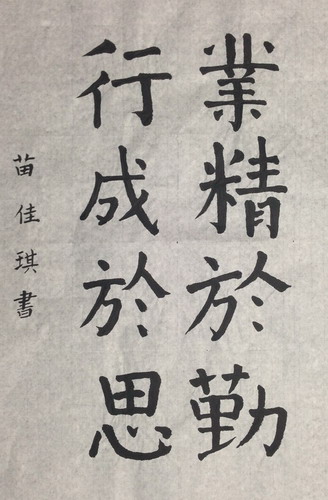 業精於勤
行成於思
苗佳琪書